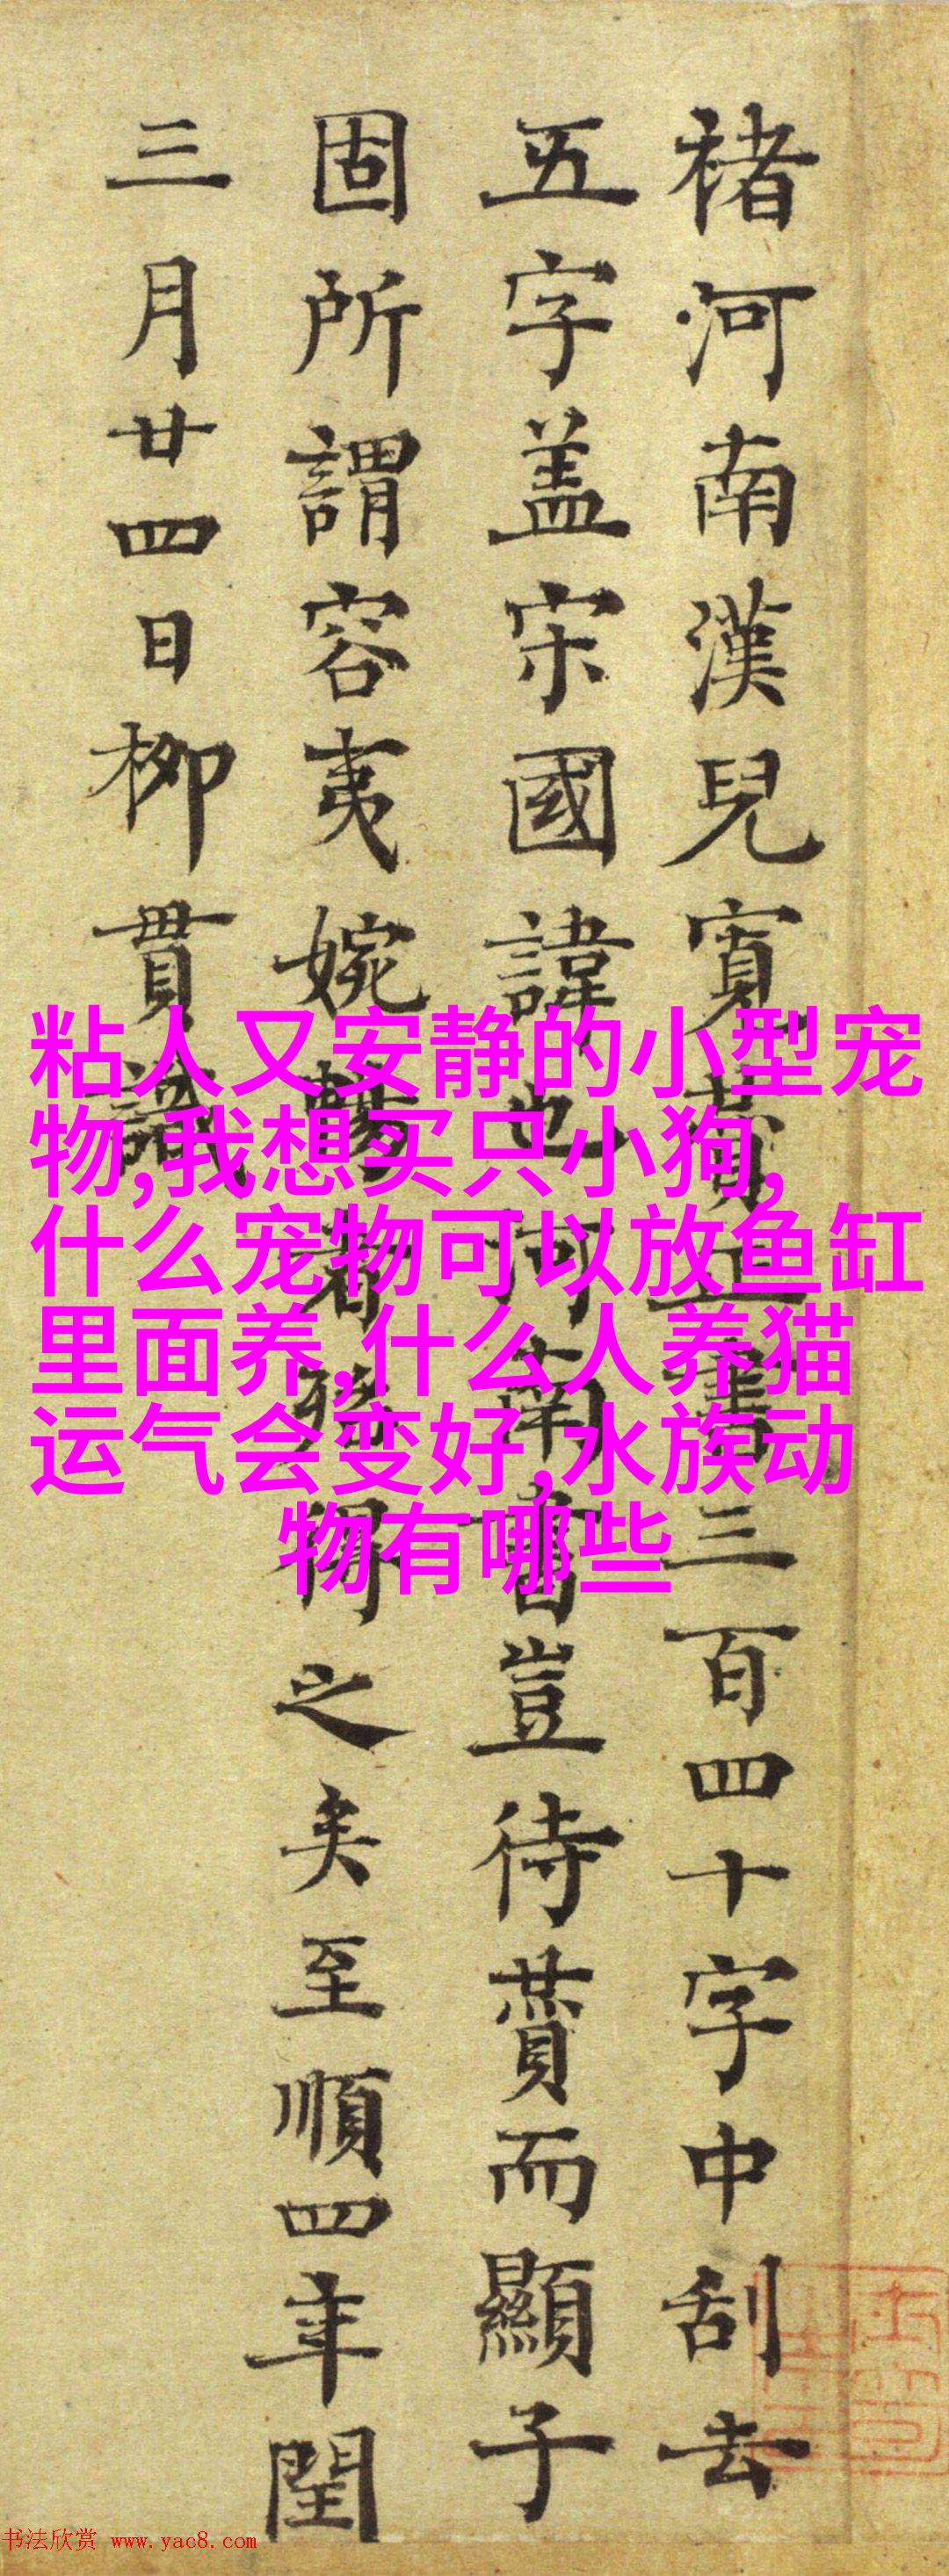 褚河南漢兒寬贊正書三百四十字中刮去
五字盖宋國諱也河南書豈待賛而顯子
固所謂容夷婉暢者得之矣至順四年閏
三月廿四日柳貫識
粘人又安静的小型宠
物,我想买只小狗,
什么宠物可以放鱼缸
里面养,什么人养猫
运气会变好,水族动
物有哪些
书法欣赏 www.yac8.com